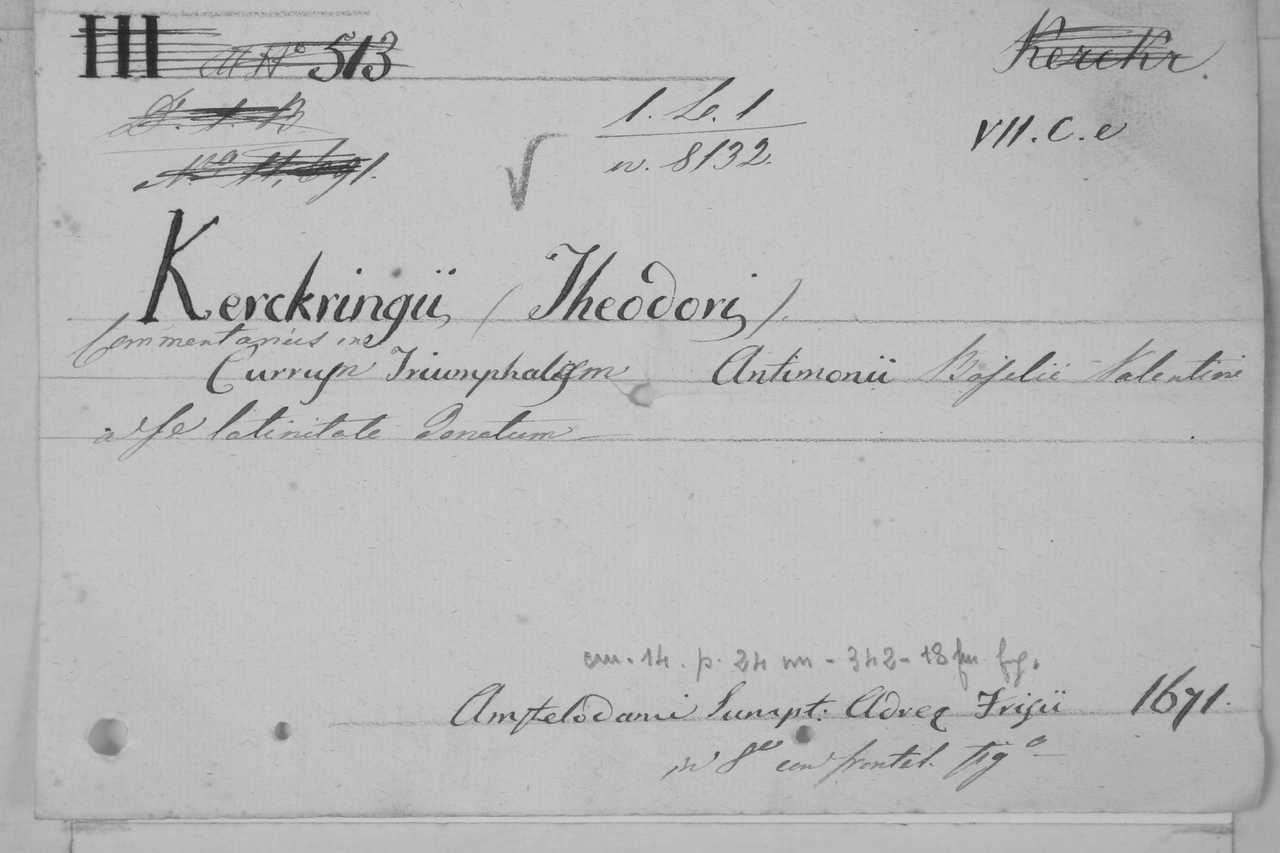 III A N° 513
Kerckr.
D. 1. B.
N° 11,691.
1. Le. 1
n. 8132.
VII. C. e
Kerckringii (Theodori)
Commentarius in
Currum Triumphalem Antimonii Basilii Valentini
a se latinitate donatum
cm. 14. p. 24 nn - 342 - 18 nn fig.
Amstelodami Sumpt. Andreę Frisii 1671.
in 8° con frontesp. fig°